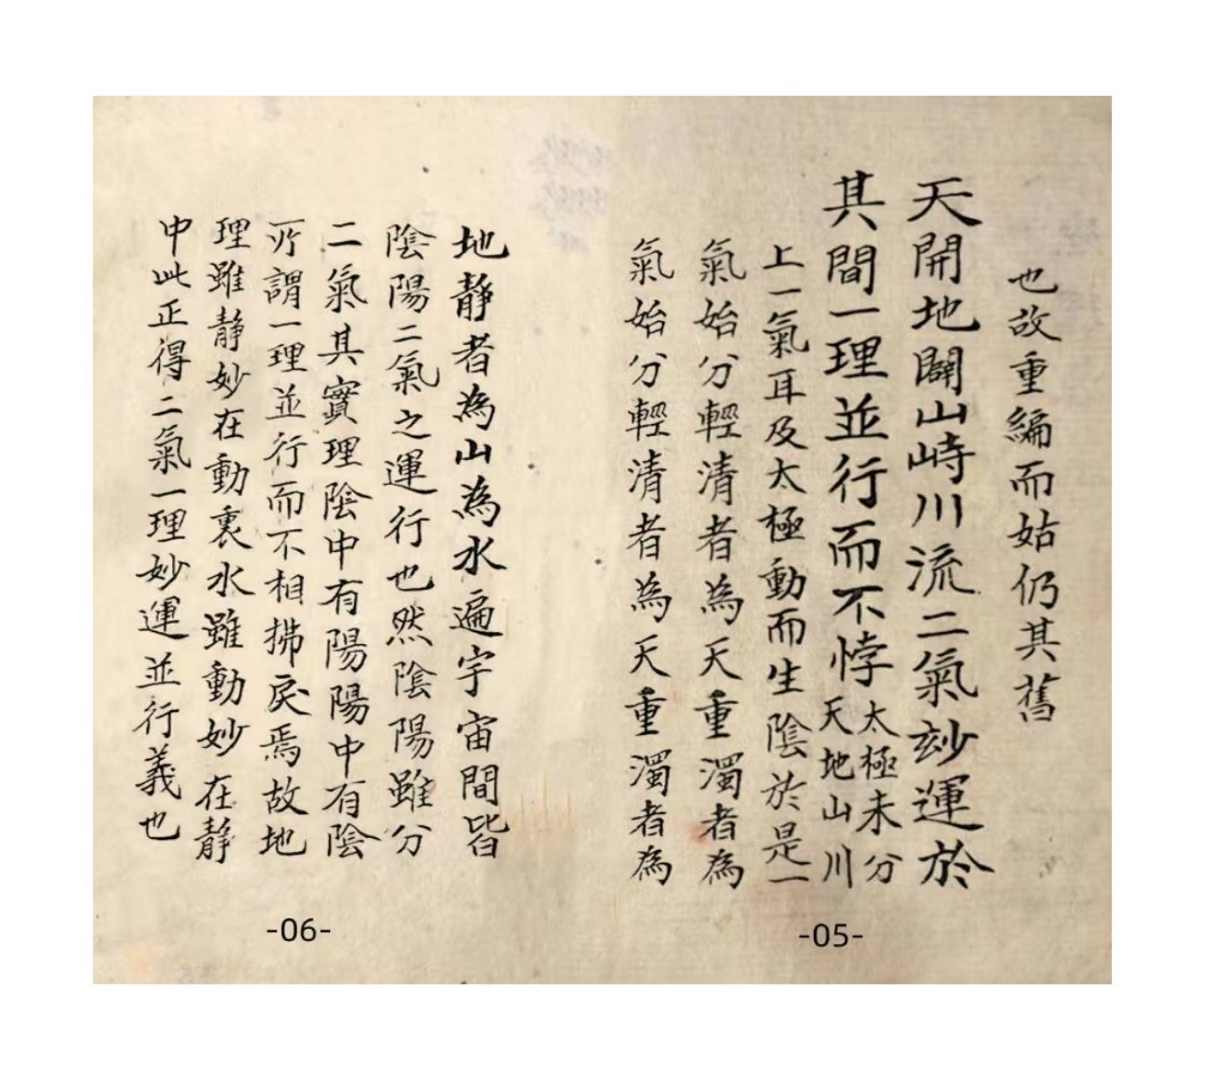 也故重編而姑仍其舊
天開地闢山峙川流二氣玅運於
其間一理並行而不悖
太極未分
天地山川
上一氣耳及太極動而生陰於是一
氣始分輕清者為天重濁者為
氣始分輕清者為天重濁者為
-05-
地静者為山為水遍宇宙間皆
陰陽二氣之運行也然陰陽雖分
二氣其實理陰中有陽陽中有陰
所謂一理並行而不相拂戾焉故地
理雖静妙在動裏水雖動妙在静
中此正得二氣一理妙運並行義也
-06-